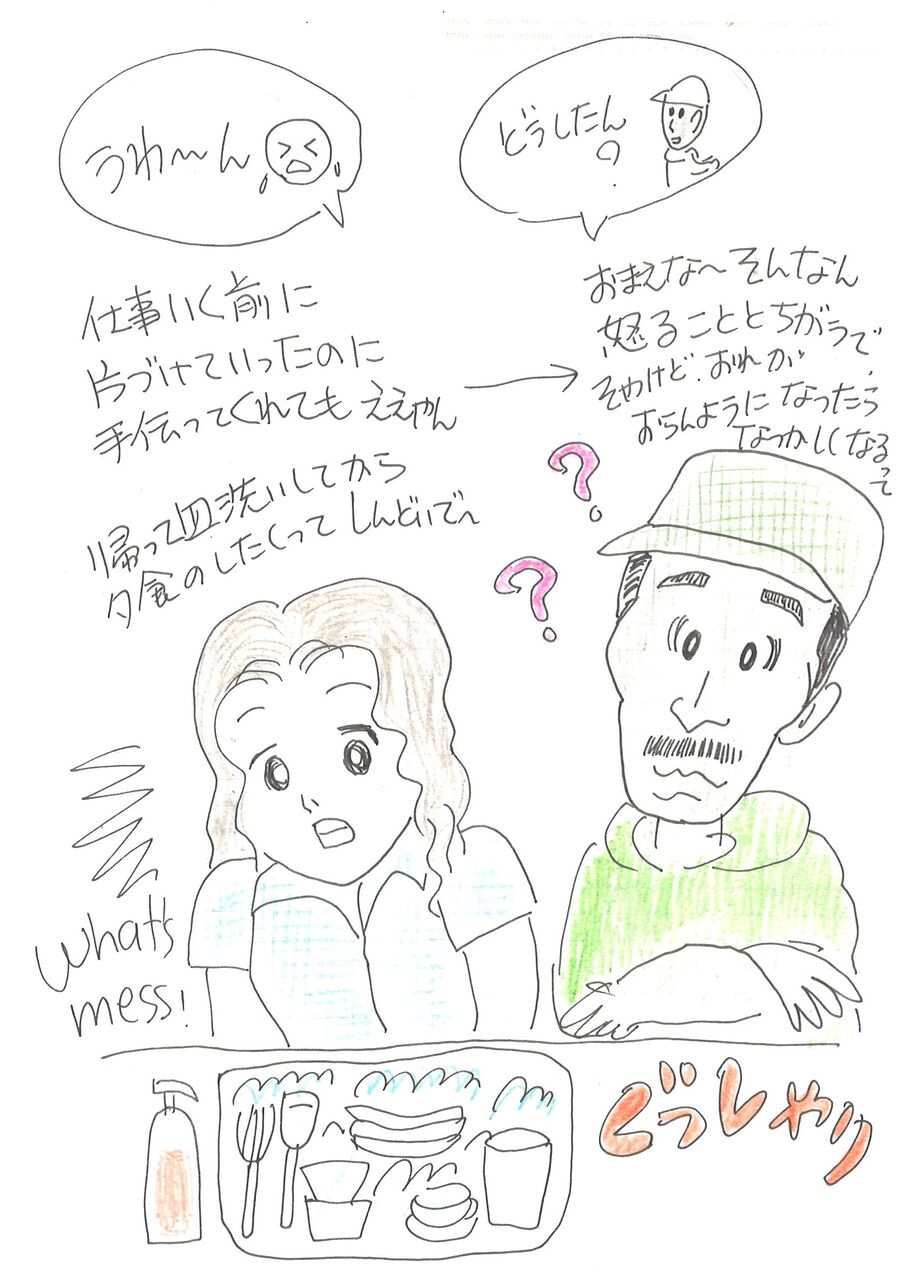 うわ〜ん
どうしたん
?
仕事いく前に
片づけていったのに
手伝ってくれてもええやん
帰って皿洗いしてから
夕食のしたくってしんどいで〜
おまえな〜そんなん
怒ることとちがうで、
そやけど、おれが
おらんようになったら
なつかしくなるって
?
?
What's
mess!
ぐっしゃり